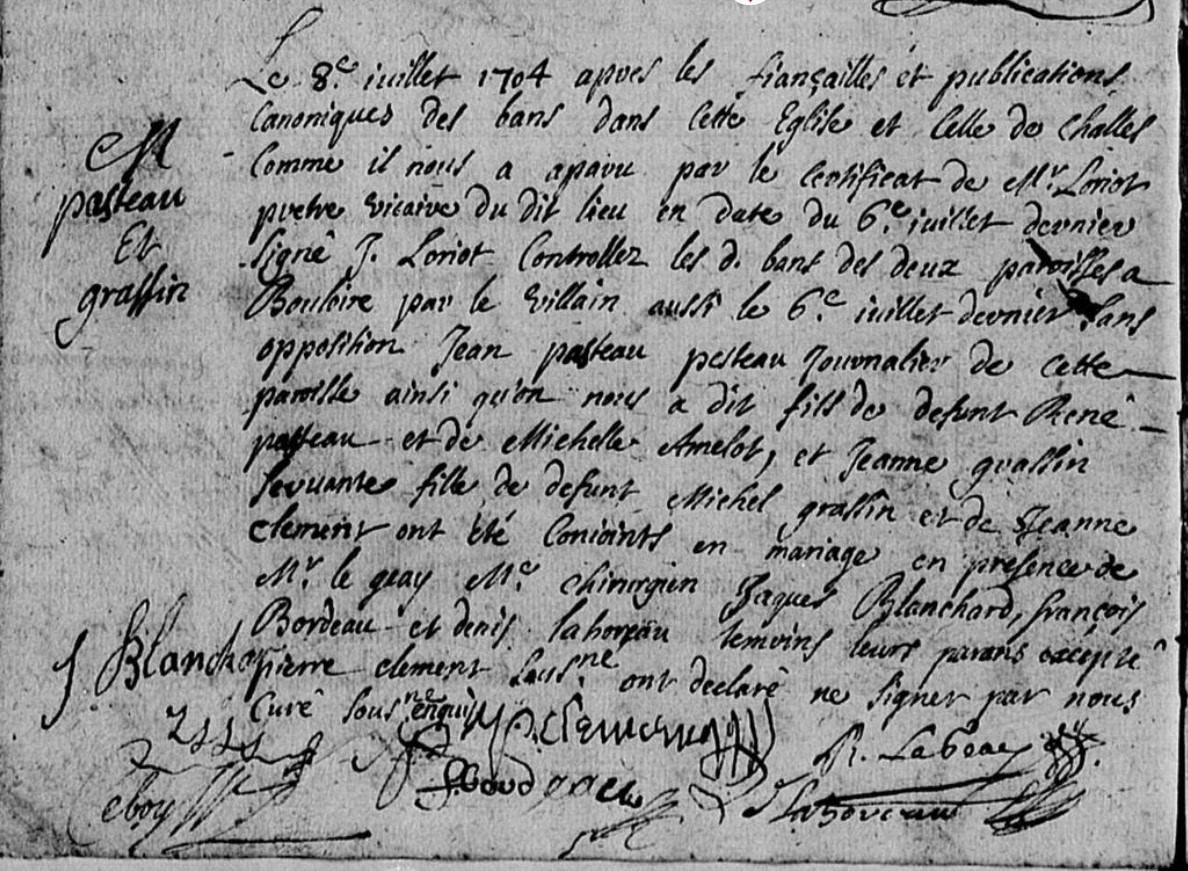 M
pasteau
Et
grassin
Le 8e iuillet 1704 apres les fiançailles et publications
Canoniques des bans dans Cette Eglise et Celle de Challes
Comme il nous a aparu par le Certificat de Mr. Loriot
pretre vicaire du dit lieu en date du 6e. iuillet dernier
signé J. Loriot Controllez les d. bans des deux paroisses a
Bouloire par le villain aussi le 6e iuillet dernier sans
opposition Jean pasteau pesteau Journalier de cette
paroisse ainsi qu'on nous a dit fils de defunt René
pasteau et de Michelle Amelot, et Jeanne grassin
servante fille de defunt Michel grassin et de Jeanne
Clement ont été Conioints en mariage en presence de
Mr. le guay Me chirurgien Jaques Blanchard, françois
Bordeau et denis laboreau temoins leurs parans excepté
pierre clement ont declaré ne signer par nous
Curé sous
J Blanchar
P. Clement
R. Le Guay
laboreau